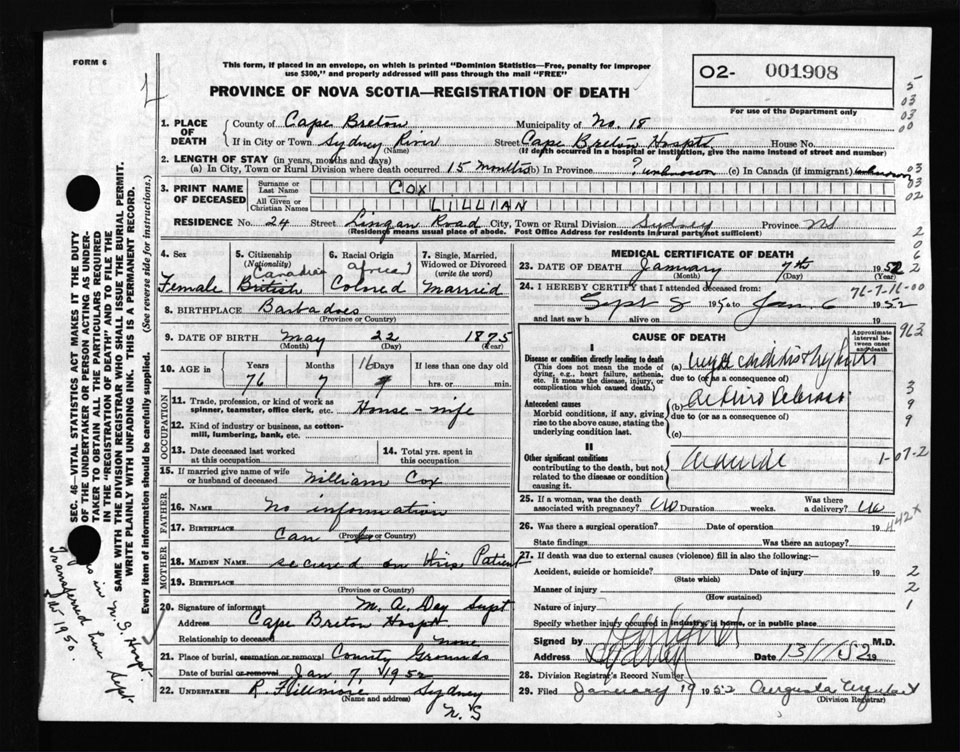 FORM 6
This form, if placed in an envelope, on which is printed "Dominion Statistics—Free, penalty for improper
use $300," and properly addressed will pass through the mail "FREE"
PROVINCE OF NOVA SCOTIA—REGISTRATION OF DEATH
O2- 001908
For use of the Department only
1. PLACE OF DEATH { County of Cape Breton Municipality of No. 18
If in City or Town Sydney River Street Cape Breton Hosptl House No.
(Name) (If death occurred in a hospital or institution, give the name instead of street and number)
2. LENGTH OF STAY (in years, months and days)
(a) In City, Town or Rural Division where death occurred 15 months (b) In Province ? unknown (c) In Canada (if immigrant) unknown
3. PRINT NAME OF DECEASED { Surname or Last Name COX
All Given or Christian Names LILLIAN
RESIDENCE No. 24 Street Lingan Road City, Town or Rural Division Sydney Province NS
(Residence means usual place of abode. Post Office Address for residents in rural parts not sufficient)
4. Sex Female
5. Citizenship (Nationality) Canadian British
6. Racial Origin Africa Colored
7. Single, Married, Widowed or Divorced (write the word) Married
8. BIRTHPLACE Barbadoes
(Province or Country)
9. DATE OF BIRTH May 22 1875
(Month) (Day) (Year)
10. AGE in { Years 76 Months 7 Days 16 If less than one day old hrs. or min.
OCCUPATION
11. Trade, profession, or kind of work as spinner, teamster, office clerk, etc. House-wife
12. Kind of industry or business, as cotton-mill, lumbering, bank, etc.
13. Date deceased last worked at this occupation
14. Total yrs. spent in this occupation
15. If married give name of wife or husband of deceased William Cox
FATHER
16. Name No information
17. Birthplace Can be
(Province or Country)
MOTHER
18. Maiden Name secured on this Patient
19. Birthplace
(Province or Country)
20. Signature of informant M. A. Day Supt
Address Cape Breton Hosptl
Relationship to deceased none
21. Place of burial, cremation or removal County Grounds
Date of burial or removal Jan. 7, 1952
22. Undertaker R. Fillmore Sydney
(Name and address) N.S
MEDICAL CERTIFICATE OF DEATH
23. DATE OF DEATH January 7th 1952
(Month) (Day) (Year)
24. I HEREBY CERTIFY that I attended deceased from: 76-7-16-00
Sept 8 to Jan 6 1952
and last saw h alive on 19
CAUSE OF DEATH
Approximate interval between onset and death
I
Disease or condition directly leading to death (a)
(This does not mean the mode of dying, e.g., heart failure, asthenia, etc. It means the disease, injury, or complication which caused death.)
due to (or as a consequence of)
Antecedent causes (b)
Morbid conditions, if any, giving rise to the above cause, stating the underlying condition last.
due to (or as a consequence of)
(c)
II
Other significant conditions
contributing to the death, but not related to the disease or condition causing it.
25. If a woman, was the death associated with pregnancy? No Duration weeks. Was there a delivery? No
26. Was there a surgical operation? Date of operation 19
State findings Was there an autopsy?
27. If death was due to external causes (violence) fill in also the following:—
Accident, suicide or homicide? Date of injury 19
(State which)
Manner of injury
(How sustained)
Nature of injury
Specify whether injury occurred in industry, in home, or in public place
Signed by M.D.
Address Sydney Date 13/1/52 19
28. Division Registrar's Record Number
29. Filed January 19 1952 Augusta
(Division Registrar)
SEC. 46—VITAL STATISTICS ACT MAKES IT THE DUTY
OF THE UNDERTAKER OR PERSON ACTING AS UNDER-
TAKER TO OBTAIN ALL THE PARTICULARS REQUIRED
IN THE "REGISTRATION OF DEATH" AND TO FILE THE
SAME WITH THE DIVISION REGISTRAR WHO SHALL ISSUE THE BURIAL PERMIT.
WRITE PLAINLY WITH UNFADING INK. THIS IS A PERMANENT RECORD.
Every item of information should be carefully supplied. (See reverse side for instructions.)
in N.S. Hospt
Transferred here Sept
1950.